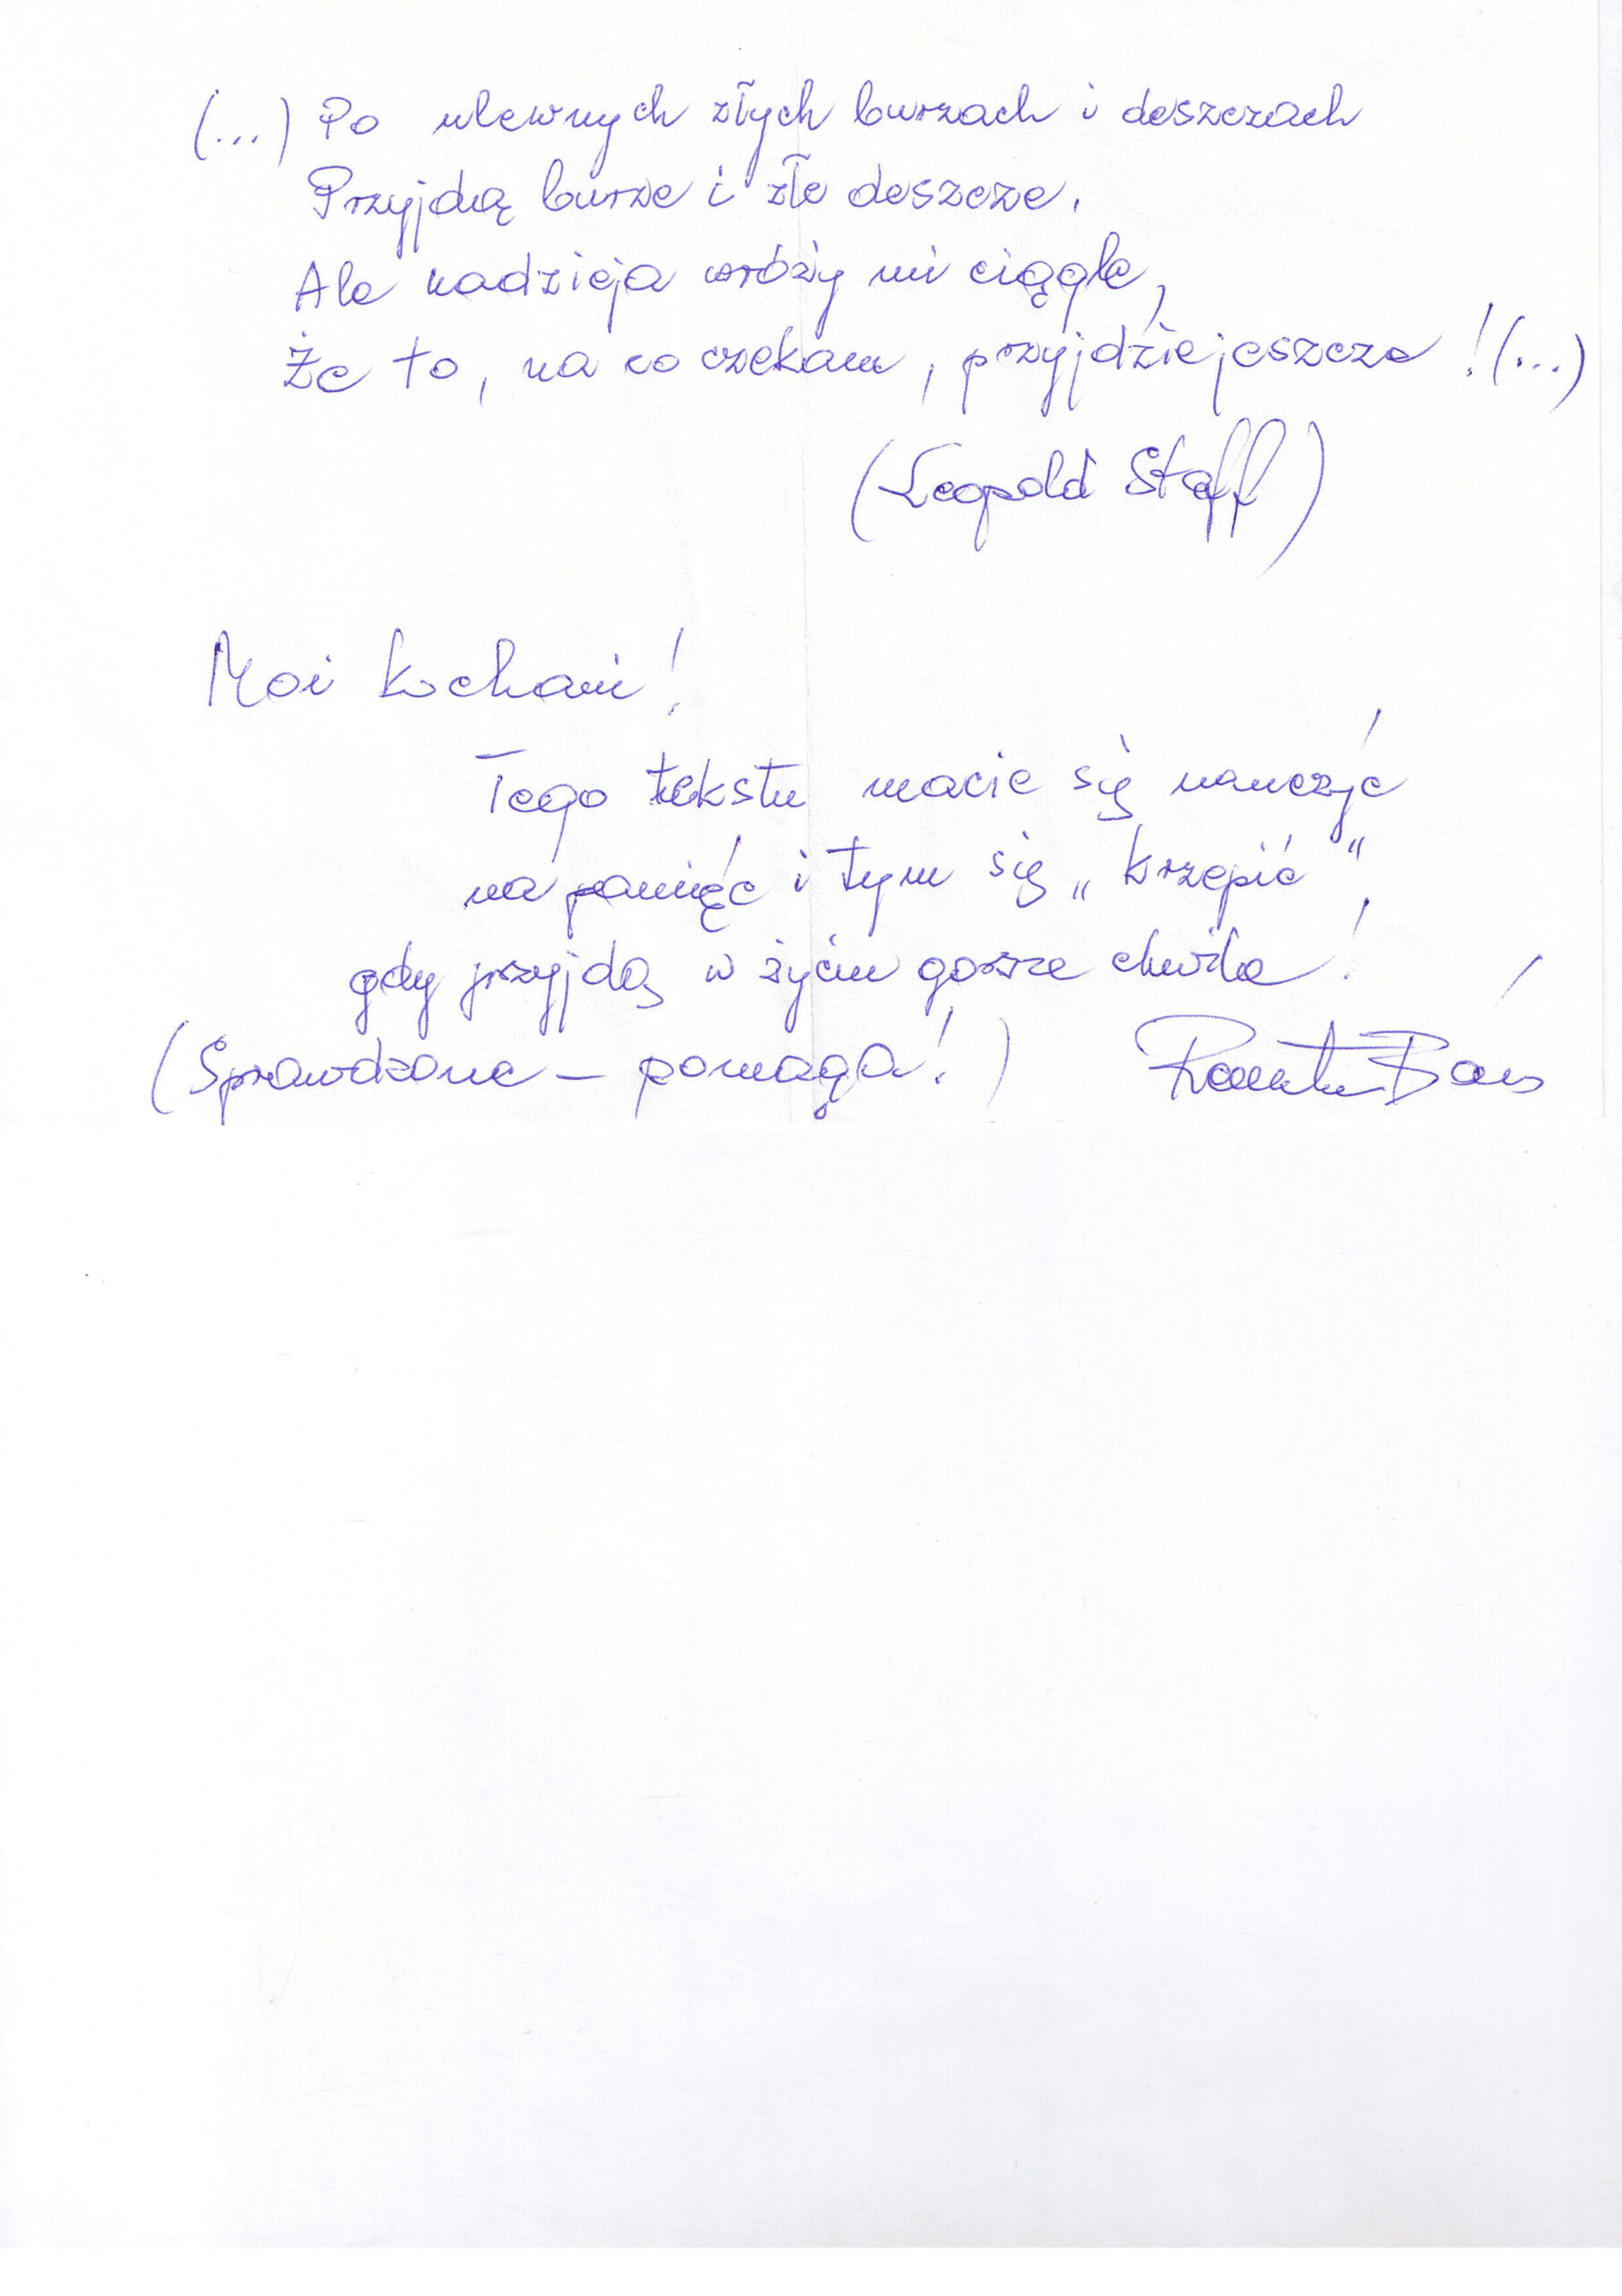 (...) Po ulewnych złych burzach i deszczach
Przyjdą burze i złe deszcze.
Ale nadzieja wróży mi ciągle,
Że to, na co czekam, przyjdzie jeszcze! (...)
(Leopold Staff)
Moi kochani!
Tego tekstu macie się nauczyć
na pamięć i tym się „krzepić”,
gdy przyjdą w życiu gorsze chwile!
(Sprawdzone – pomaga!) Renata